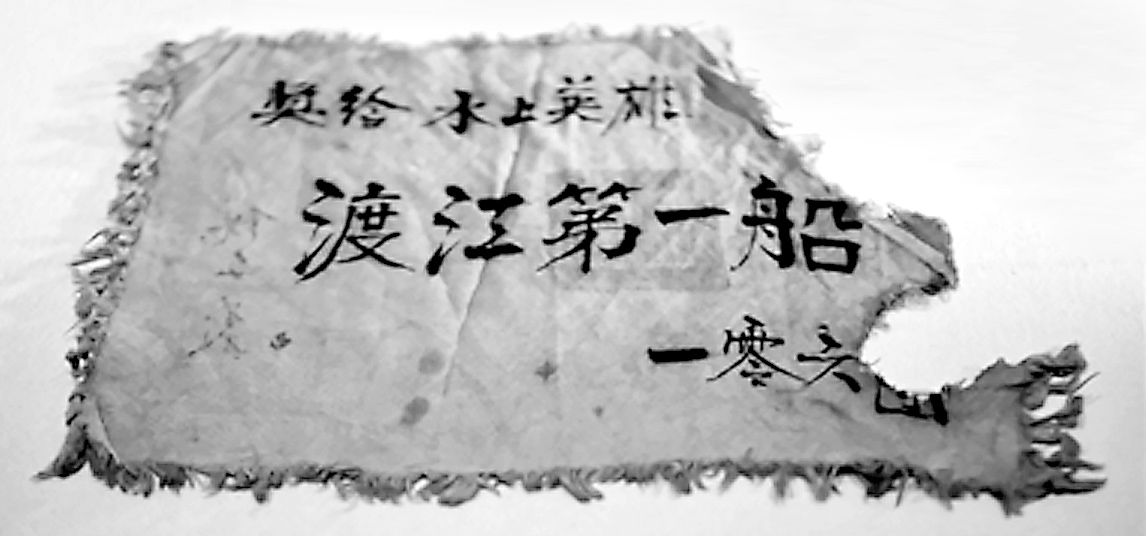 奖给水上英雄
渡江第一船
一零六